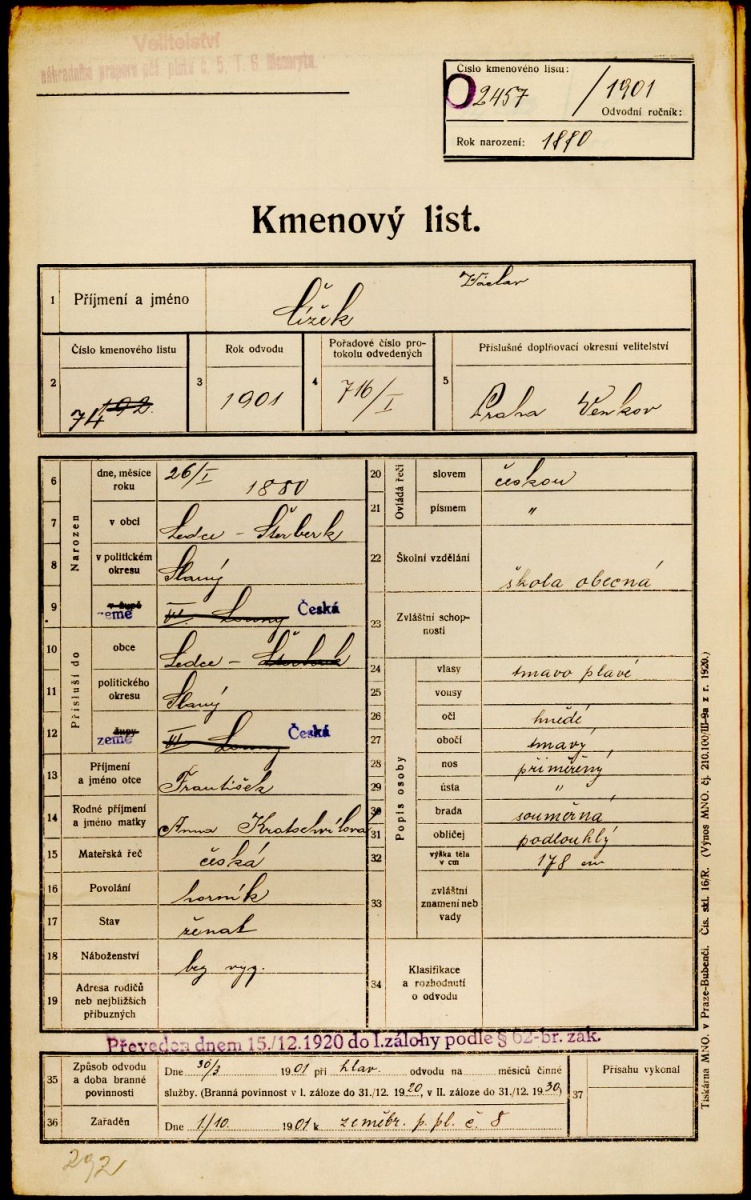 Velitelství
náhradního praporu pěš. pluku č. 5, T. G. Masaryka.
Číslo kmenového listu:
2457 / 1901
Odvodní ročník:
Rok narození: 1880
Kmenový list.
1 Příjmení a jméno Čížek Václav
2 Číslo kmenového listu 74 192
3 Rok odvodu 1901
4 Pořadové číslo protokolu odvedených 716/I
5 Příslušné doplňovací okresní velitelství Praha Venkov
Narozen
6 dne, měsíce roku 26/I 1880
7 v obci Ledce - Šterberk
8 v politickém okresu Slaný
9 v župě země VI. Louny Česká
Přísluší do
10 obce Ledce - Šterberk
11 politického okresu Slaný
12 župy země VI. Louny Česká
13 Příjmení a jméno otce František
14 Rodné příjmení a jméno matky Anna Kratochvílova
15 Mateřská řeč česká
16 Povolání horník
17 Stav ženat
18 Náboženství bez vyz.
19 Adresa rodičů neb nejbližších příbuzných
Ovládá řeči
20 slovem českou
21 písmem "
22 Školní vzdělání škola obecná
23 Zvláštní schopnosti
Popis osoby
24 vlasy tmavo plavé
25 vousy
26 oči hnědé
27 obočí tmavý
28 nos přiměřený
29 ústa "
30 brada souměrná
31 obličej podlouhlý
32 výška těla v cm 178 cm
33 zvláštní znamení neb vady
34 Klasifikace a rozhodnutí o odvodu
Převeden dnem 15./12.1920 do I.zálohy podle § 62-br. zák.
35 Způsob odvodu a doba branné povinnosti
Dne 30/3 1901 při hlav. odvodu na měsíců činné
služby. (Branná povinnost v I. záloze do 31./12. 1920, v II. záloze do 31./12. 1930)
36 Zařaděn Dne 1./10. 1901 k zeměbr. p. pl. č. 8
37 Přísahu vykonal
292
Tiskárna MNO. v Praze-Bubenči. Čís. skl. 16/R. (Výnos MNO. čj. 210.100/III-9a z r. 1920.)